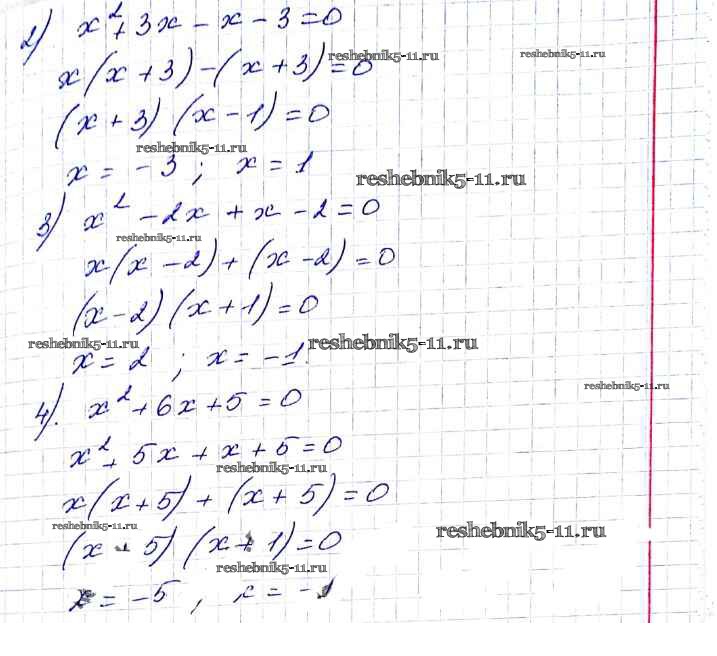 2) x² + 3x - x - 3 = 0
reshebnik5-11.ru
reshebnik5-11.ru
x(x + 3) - (x + 3) = 0
(x + 3) (x - 1) = 0
reshebnik5-11.ru
x = -3 ; x = 1
reshebnik5-11.ru
3) x² - 2x + x - 2 = 0
reshebnik5-11.ru
x(x - 2) + (x - 2) = 0
(x - 2) (x + 1) = 0
reshebnik5-11.ru
reshebnik5-11.ru
x = 2 ; x = -1
reshebnik5-11.ru
4). x² + 6x + 5 = 0
x² + 5x + x + 5 = 0
reshebnik5-11.ru
x(x + 5) + (x + 5) = 0
reshebnik5-11.ru
reshebnik5-11.ru
(x + 5) (x + 1) = 0
reshebnik5-11.ru
x = -5 , x = -1